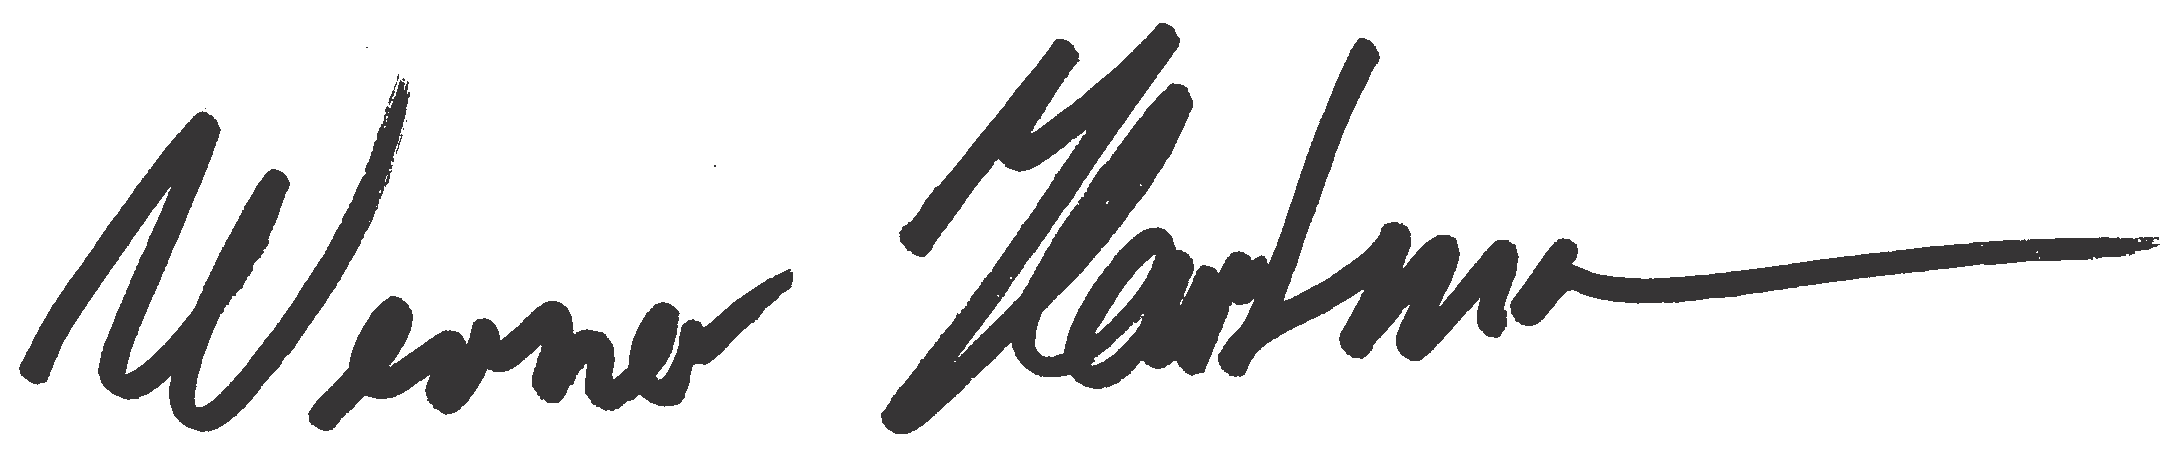 Werner Hartman